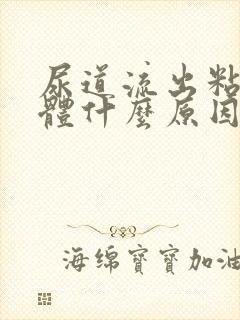 尿道流出粘
體什麼原因
海绵寶寶加油